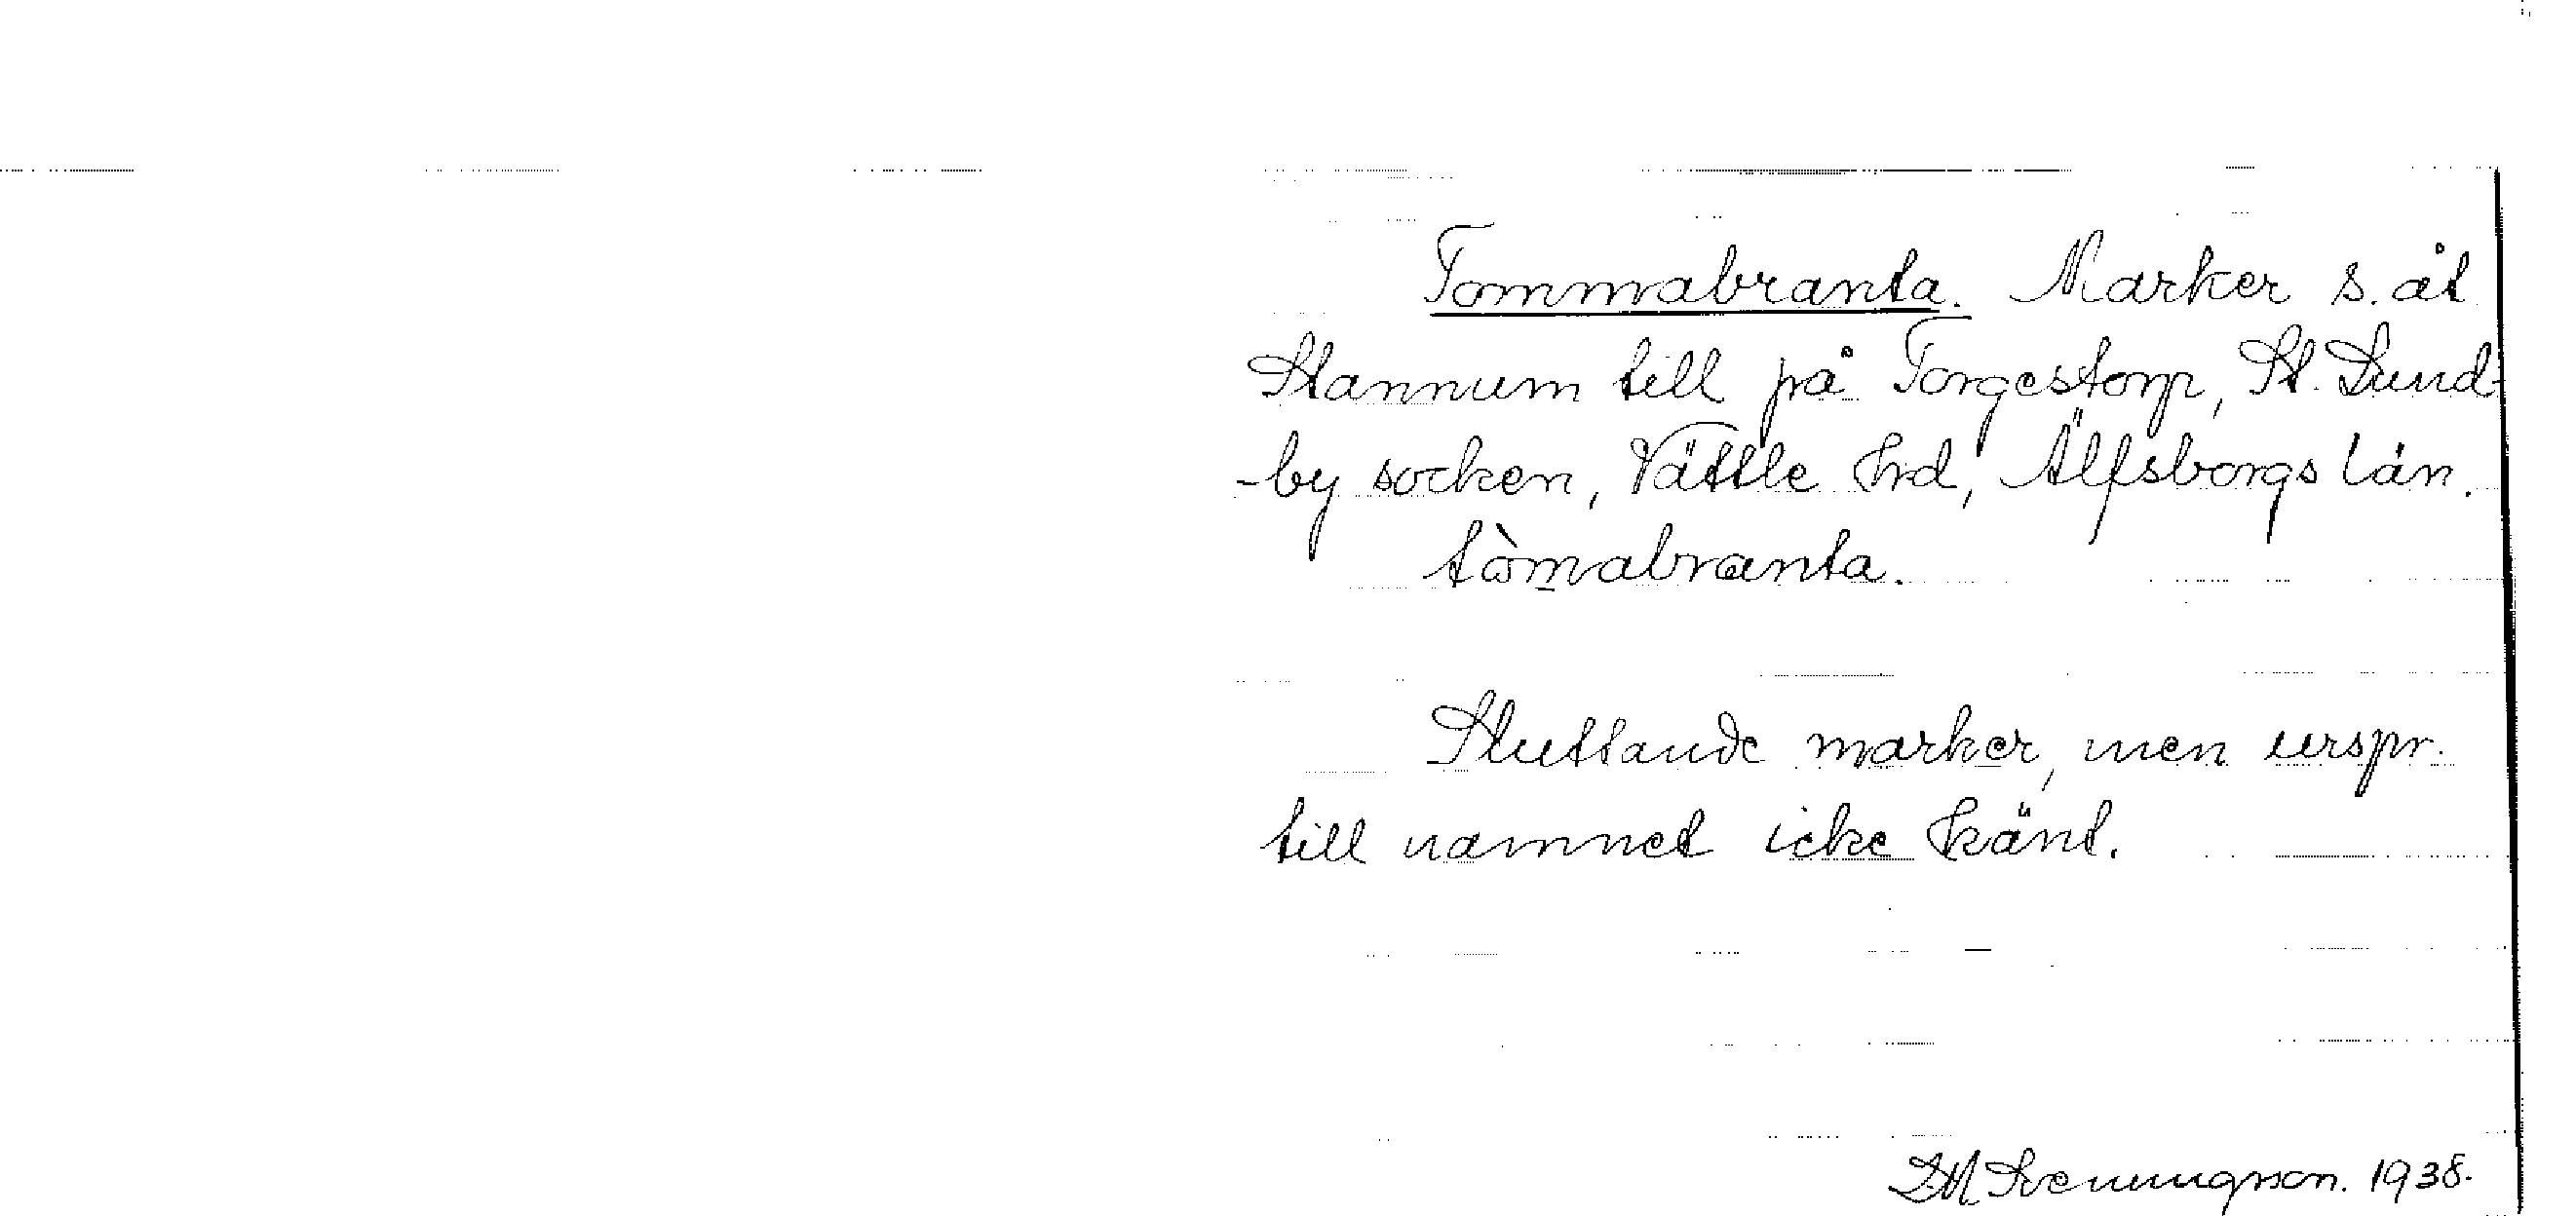 Tommabranta. Marker s. åt
Stannum till på Torgestorp, St. Lund-
-by socken, Vättle Hrd, Älfsborgs län.
tòmabranta.
Sluttande marker, men urspr.
till namnet icke känt.
Svenungson. 1938.